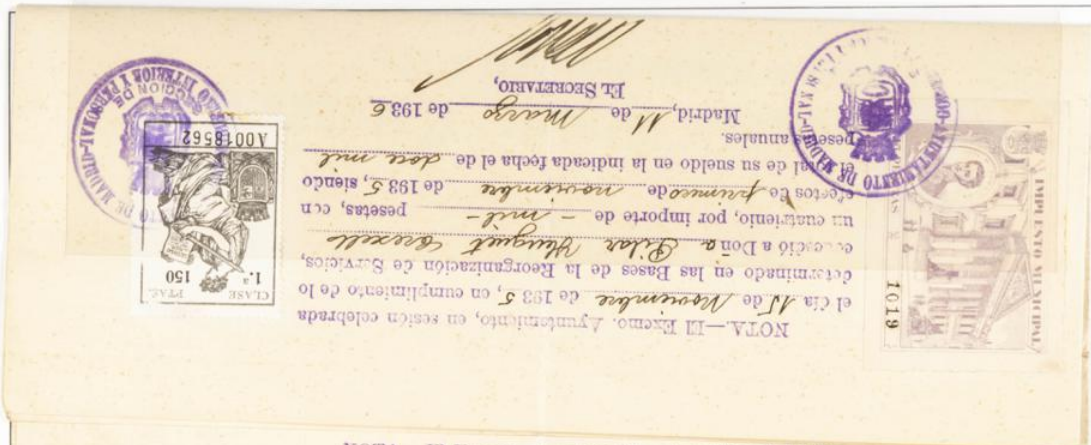 NOTA.—El Excmo. Ayuntamiento, en sesión celebrada
el día 15 de Noviembre de 1935, en cumplimiento de lo
determinado en las Bases de la Reorganización de Servicios,
concedió a Doña Pilar Huguet Crexells
un cuatrienio, por importe de - mil - pesetas, con
efectos de primero de noviembre de 1935, siendo
el total de su sueldo en la indicada fecha el de doce mil
pesetas anuales.
Madrid, 11 de marzo de 1936
EL SECRETARIO,
CLASE 1.ª
PTAS. 150
A0018562
IMPUESTO MUNICIPAL
1019
AYUNTAMIENTO DE MADRID
INTERIOR Y PERSONAL